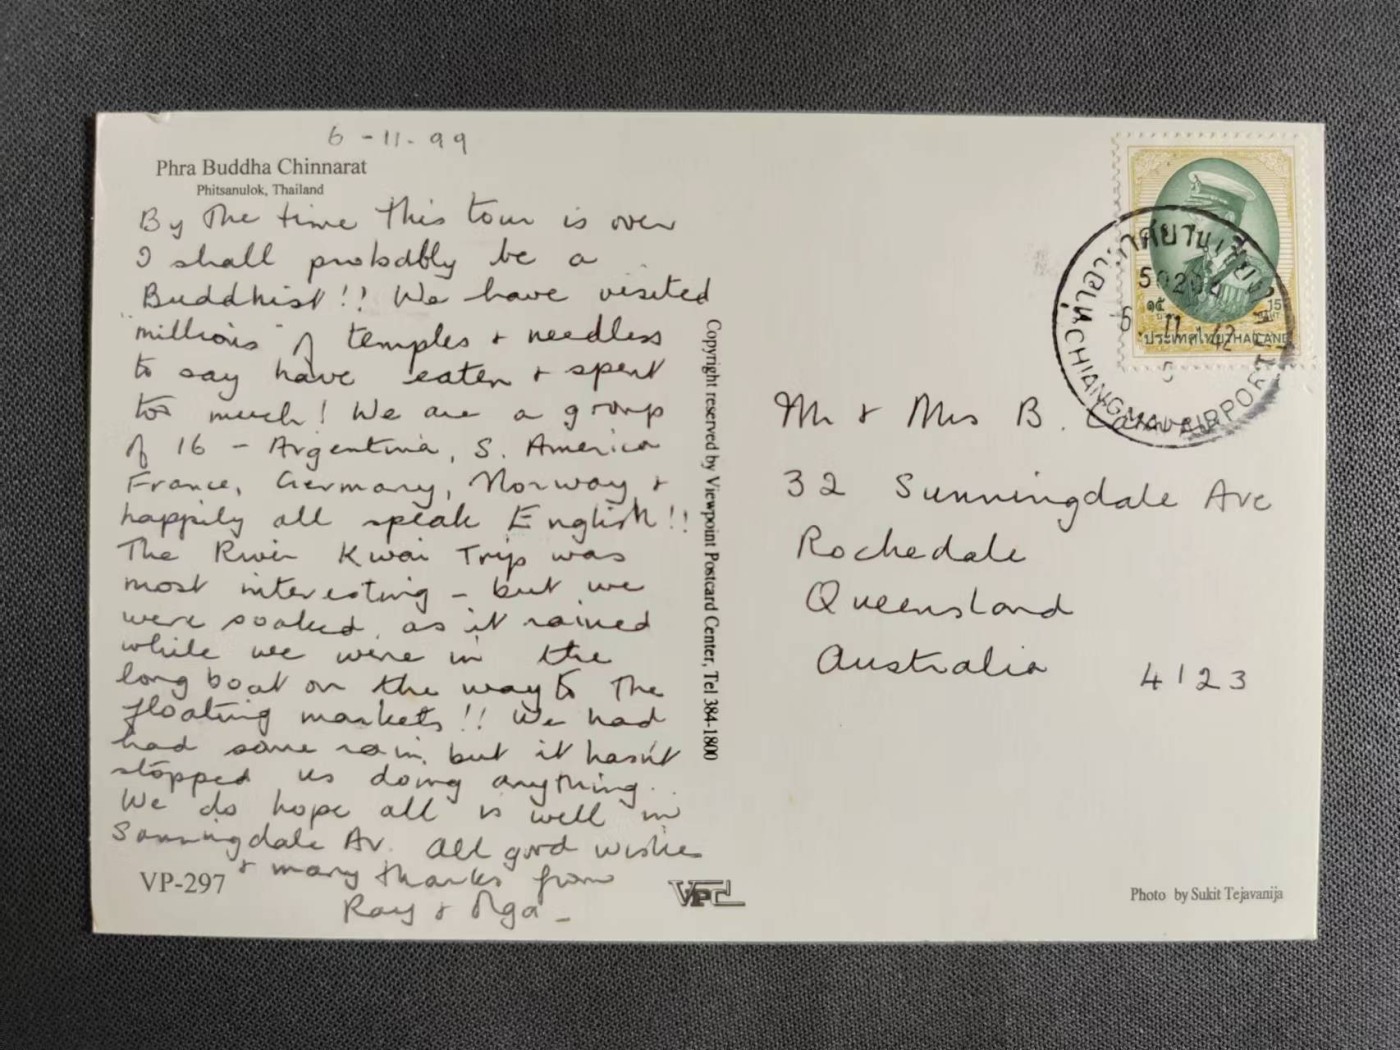 6-11-99
Phra Buddha Chinnarat
Phitsanulok, Thailand
By the time this tour is over
I shall probably be a
Buddhist!! We have visited
"millions" of temples + needless
to say have eaten + spent
too much! We are a group
of 16 - Argentina, S. America
France, Germany, Norway +
happily all speak English!!
The River Kwai Trip was
most interesting - but we
were soaked, as it rained
while we were in the
long boat on the way to the
floating markets!! We had
had some rain, but it hasn't
stopped us doing anything..
We do hope all is well in
Sunningdale Av. All good wishes
+ many thanks from
Ray +
VP-297
Copyright reserved by Viewpoint Postcard Center, Tel 384-1800
VPC
๑๕ 15
ประเทศไทย THAILAND
CHIANGMAI AIRPORT
6 11 42
Mr + Mrs B.
32 Sunningdale Ave
Rochedale
Queensland
Australia 4123
Photo by Sukit Tejavanija